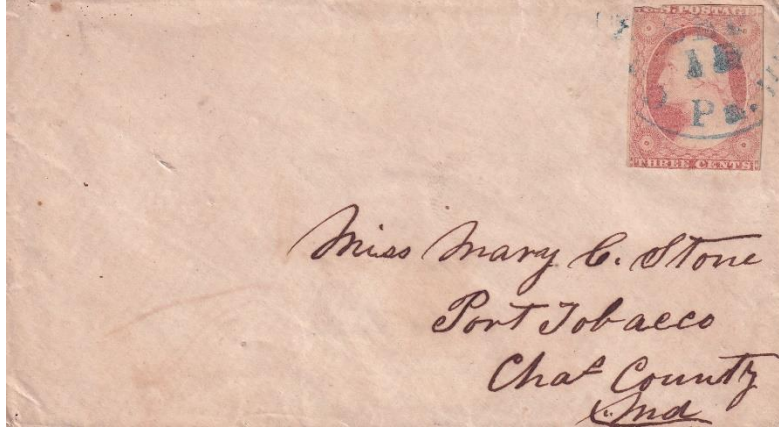 U.S. POSTAGE
18
Pa.
THREE CENTS
Miss Mary C. Stone
Port Tobacco
Chas County
Md